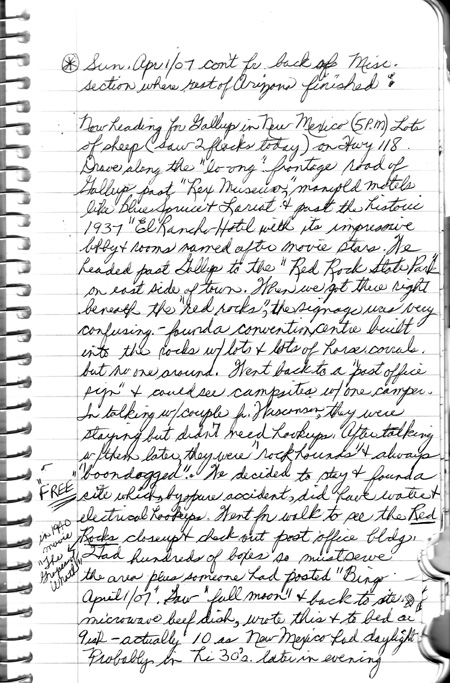 * Sun. Apr 1/07 cont fr back of Misc.
section where rest of Arizona finished:
Now heading for Gallup in New Mexico (5 P.M) Lots
of sheep (saw 2 flocks today) on Hwy 118.
Drove along the "lo-ong" frontage road of
Gallup past "Rex Museum", many old motels
like Blue Spruce & Lariat & past the historic
1937 "El Rancho Hotel with its impressive
lobby & rooms named after movie stars. We
headed past Gallup to the "Red Rock State Park"
on east side of town. When we got there right
beneath the "red rocks", the signage was very
confusing. - found a convention centre built
into the rocks w/ lots & lots of horse corrals.
but no one around. Went back to a "post office
sign" & could see campsites w/ one camper.
In talking w/ couple fr. Wisconsin, they were
staying but didn't need hookups. After talking
w/ them later, they were "rock hounds" & always
"boondogged". We decided to stay & found a
"FREE"
site which, by pure accident, did have water &
electrical hookups. Went for walk to see the Red
Rocks closeup & check out post office bldg.
in 1940
movie
"The
Grapes of
Wrath"
Had hundreds of boxes so must serve
the area plus someone had posted "Bingo
April 1/07". Saw "full moon" & back to site
microwave beef dish, wrote this & to bed at
9ish - actually 10 as New Mexico had daylight.
Probably in hi 30's. later in evening